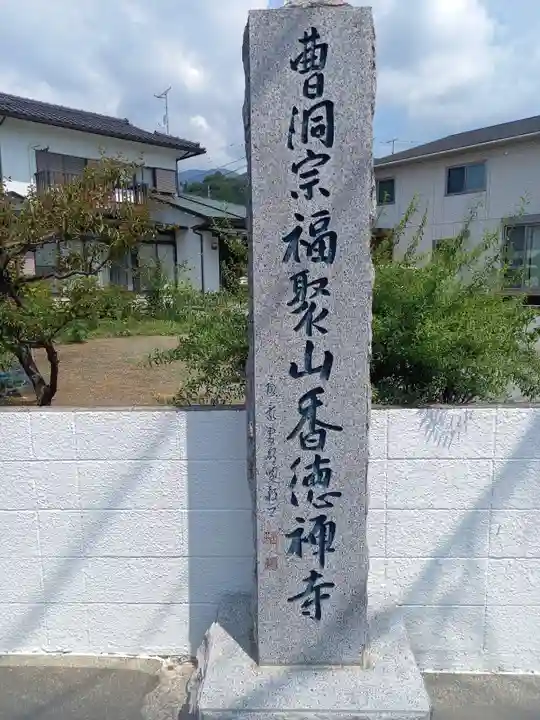 曹洞宗福聚山香徳禅寺